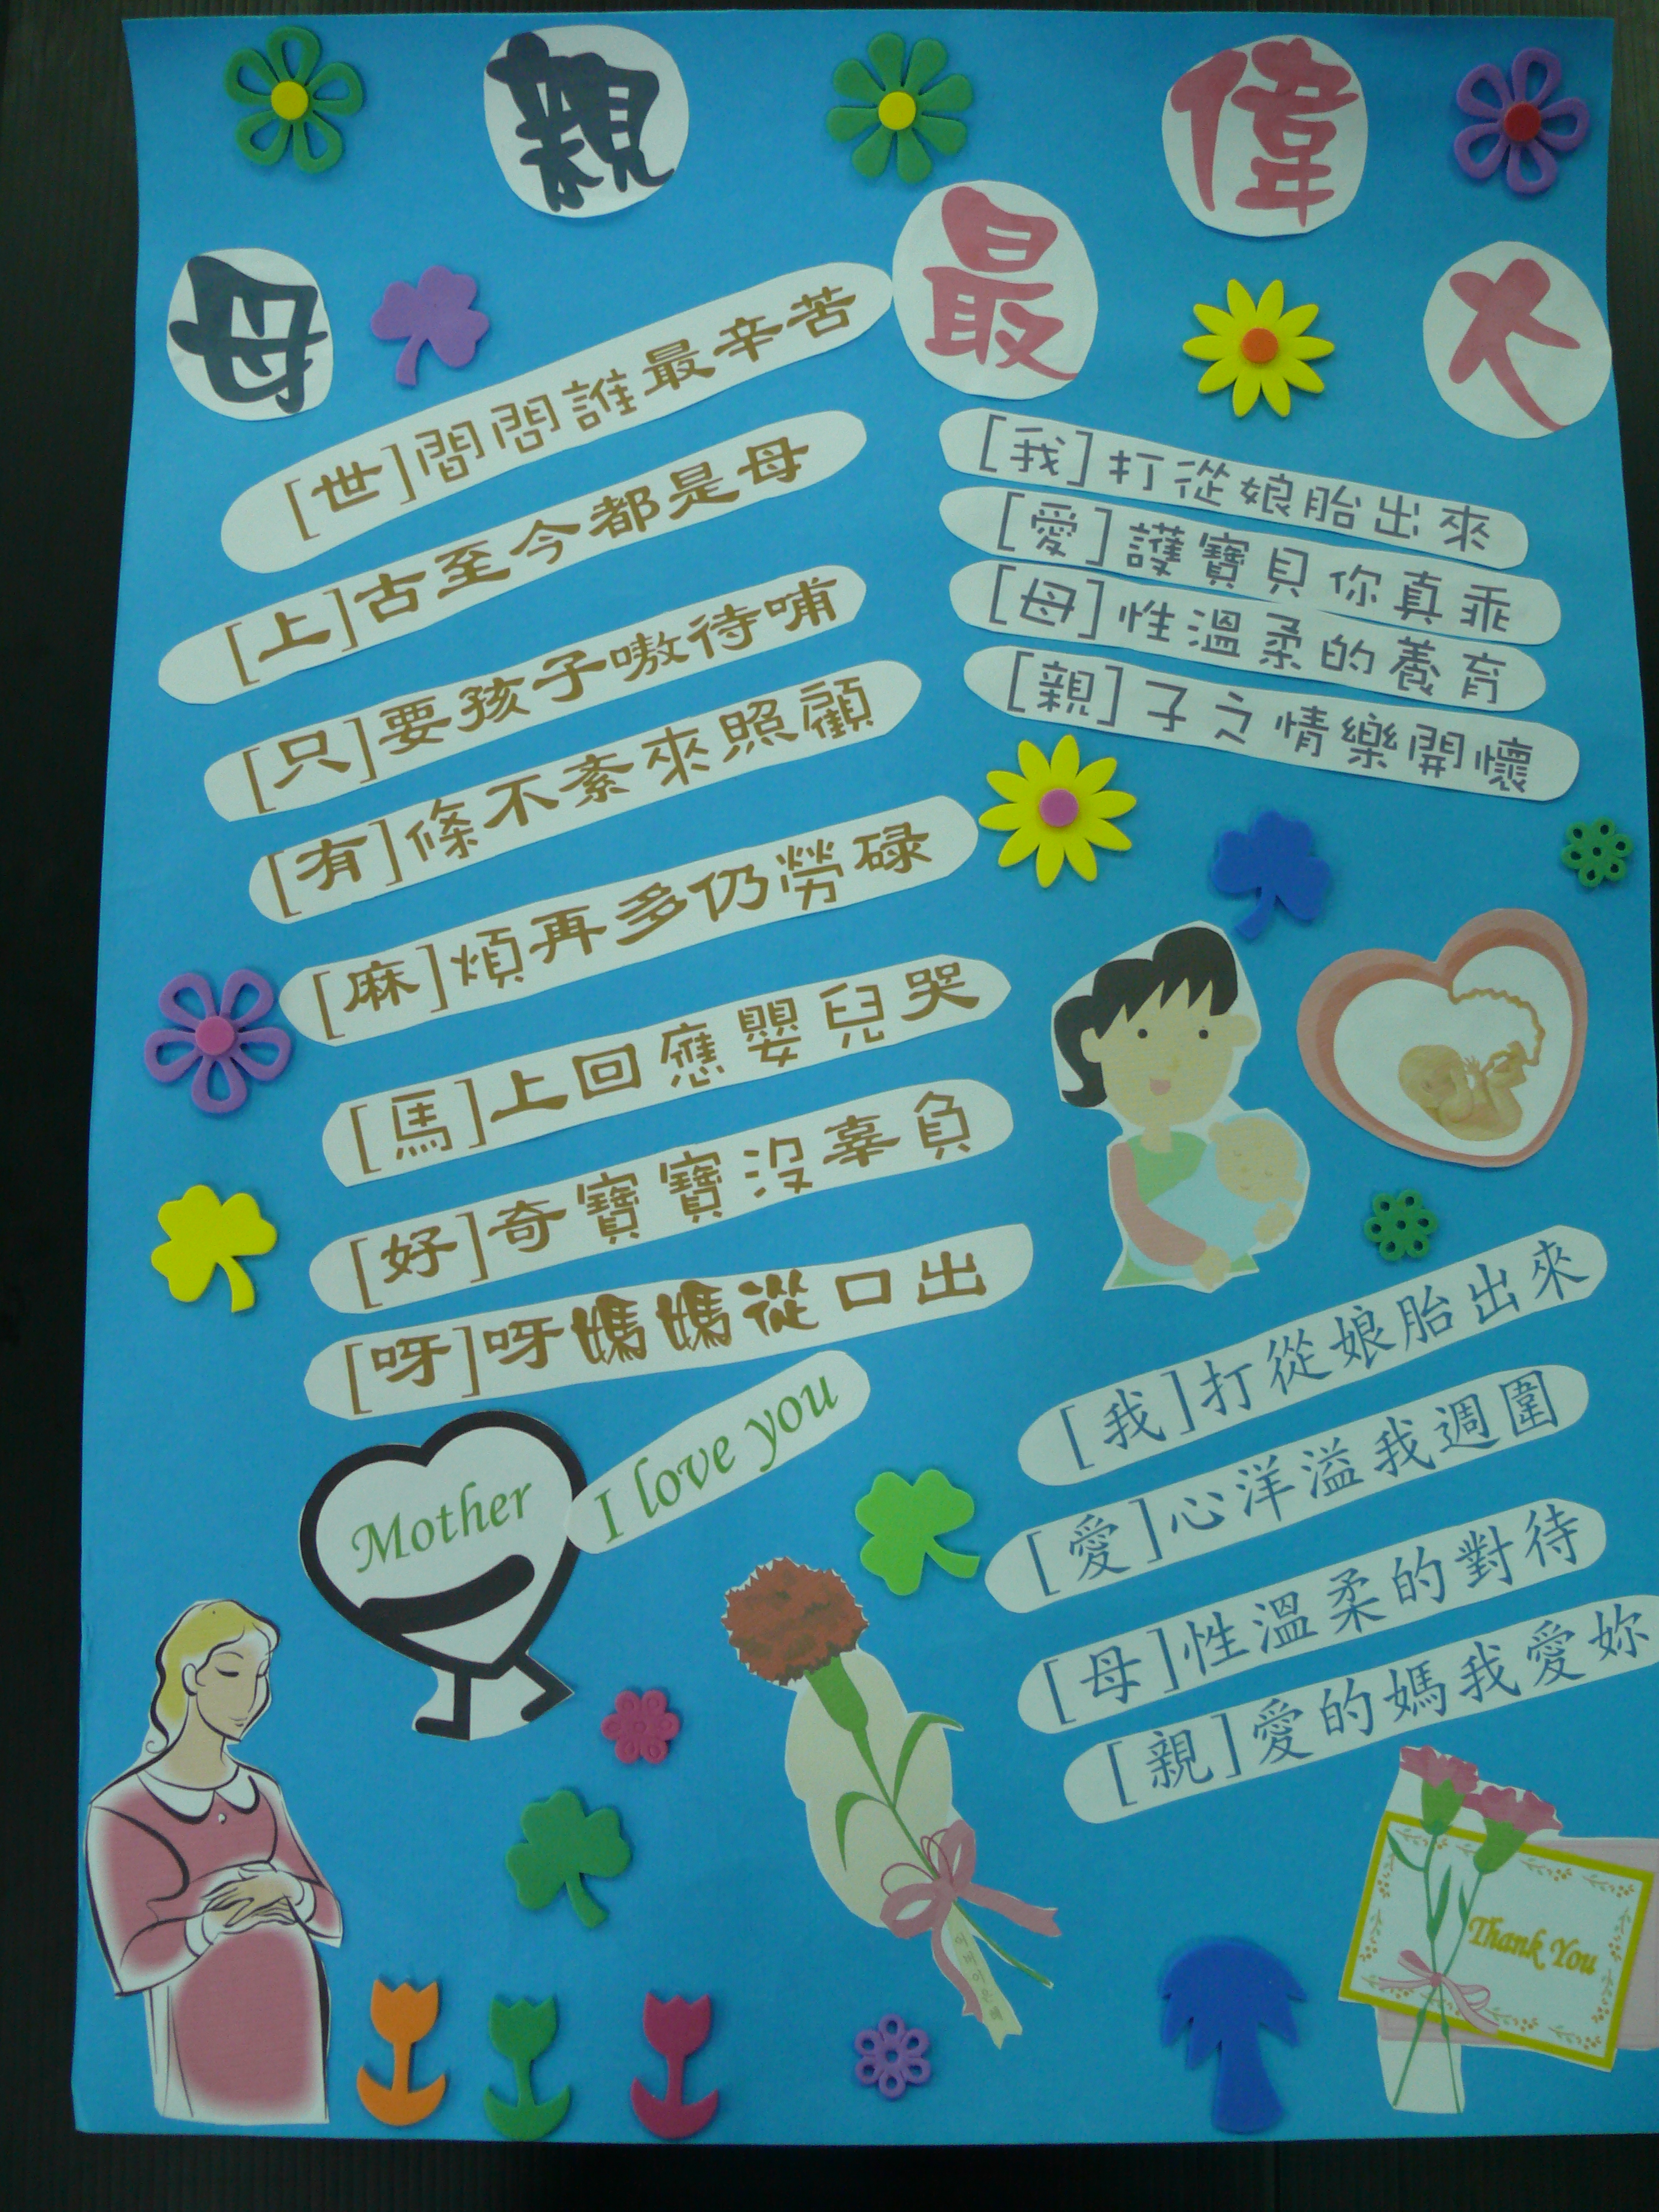 母親最偉大
[世]間問誰最辛苦
[上]古至今都是母
[只]要孩子嗷待哺
[有]條不紊來照顧
[麻]煩再多仍勞碌
[馬]上回應嬰兒哭
[好]奇寶寶沒辜負
[呀]呀媽媽從口出
Mother
I love you
[我]打從娘胎出來
[愛]護寶貝你真乖
[母]性溫柔的養育
[親]子之情樂開懷
[我]打從娘胎出來
[愛]心洋溢我週圍
[母]性溫柔的對待
[親]愛的媽我愛妳
Thank You